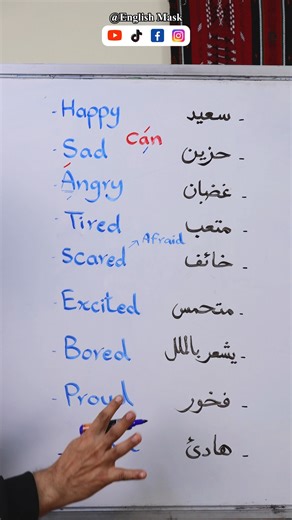 @English Mask
- Happy سعيد -
Can
- Sad حزين -
- Angry غضبان -
- Tired متعب -
Afraid
- Scared خائف -
- Excited متحمس -
- Bored يشعر بالملل -
- Proud فخور -
هادئ -